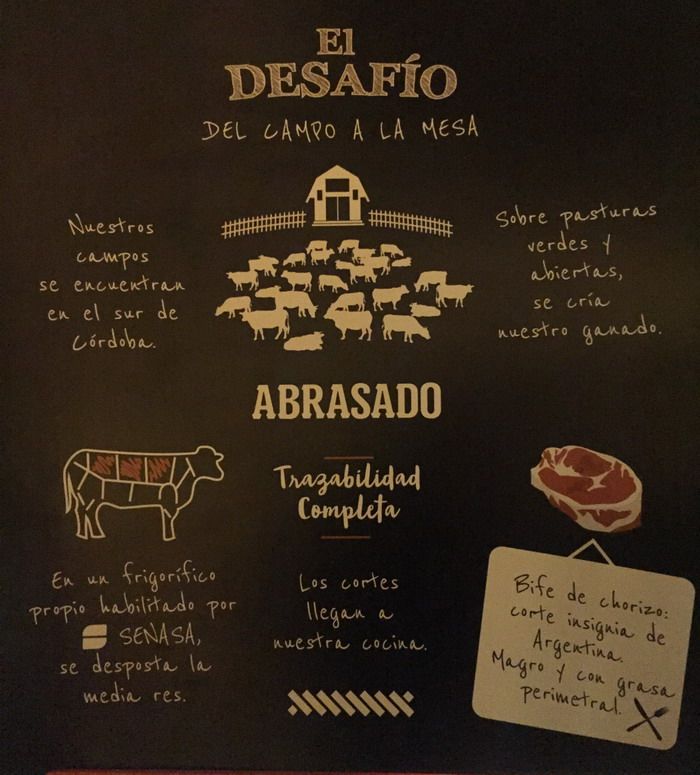 El
DESAFÍO
DEL CAMPO A LA MESA
Nuestros
campos
se encuentran
en el sur de
Córdoba.
Sobre pasturas
verdes y
abiertas,
se cría
nuestro ganado.
ABRASADO
Trazabilidad
Completa
En un frigorífico
propio habilitado por
SENASA,
se desposta la
media res.
Los cortes
llegan a
nuestra cocina.
Bife de chorizo:
corte insignia de
Argentina.
Magro y con grasa
perimetral.